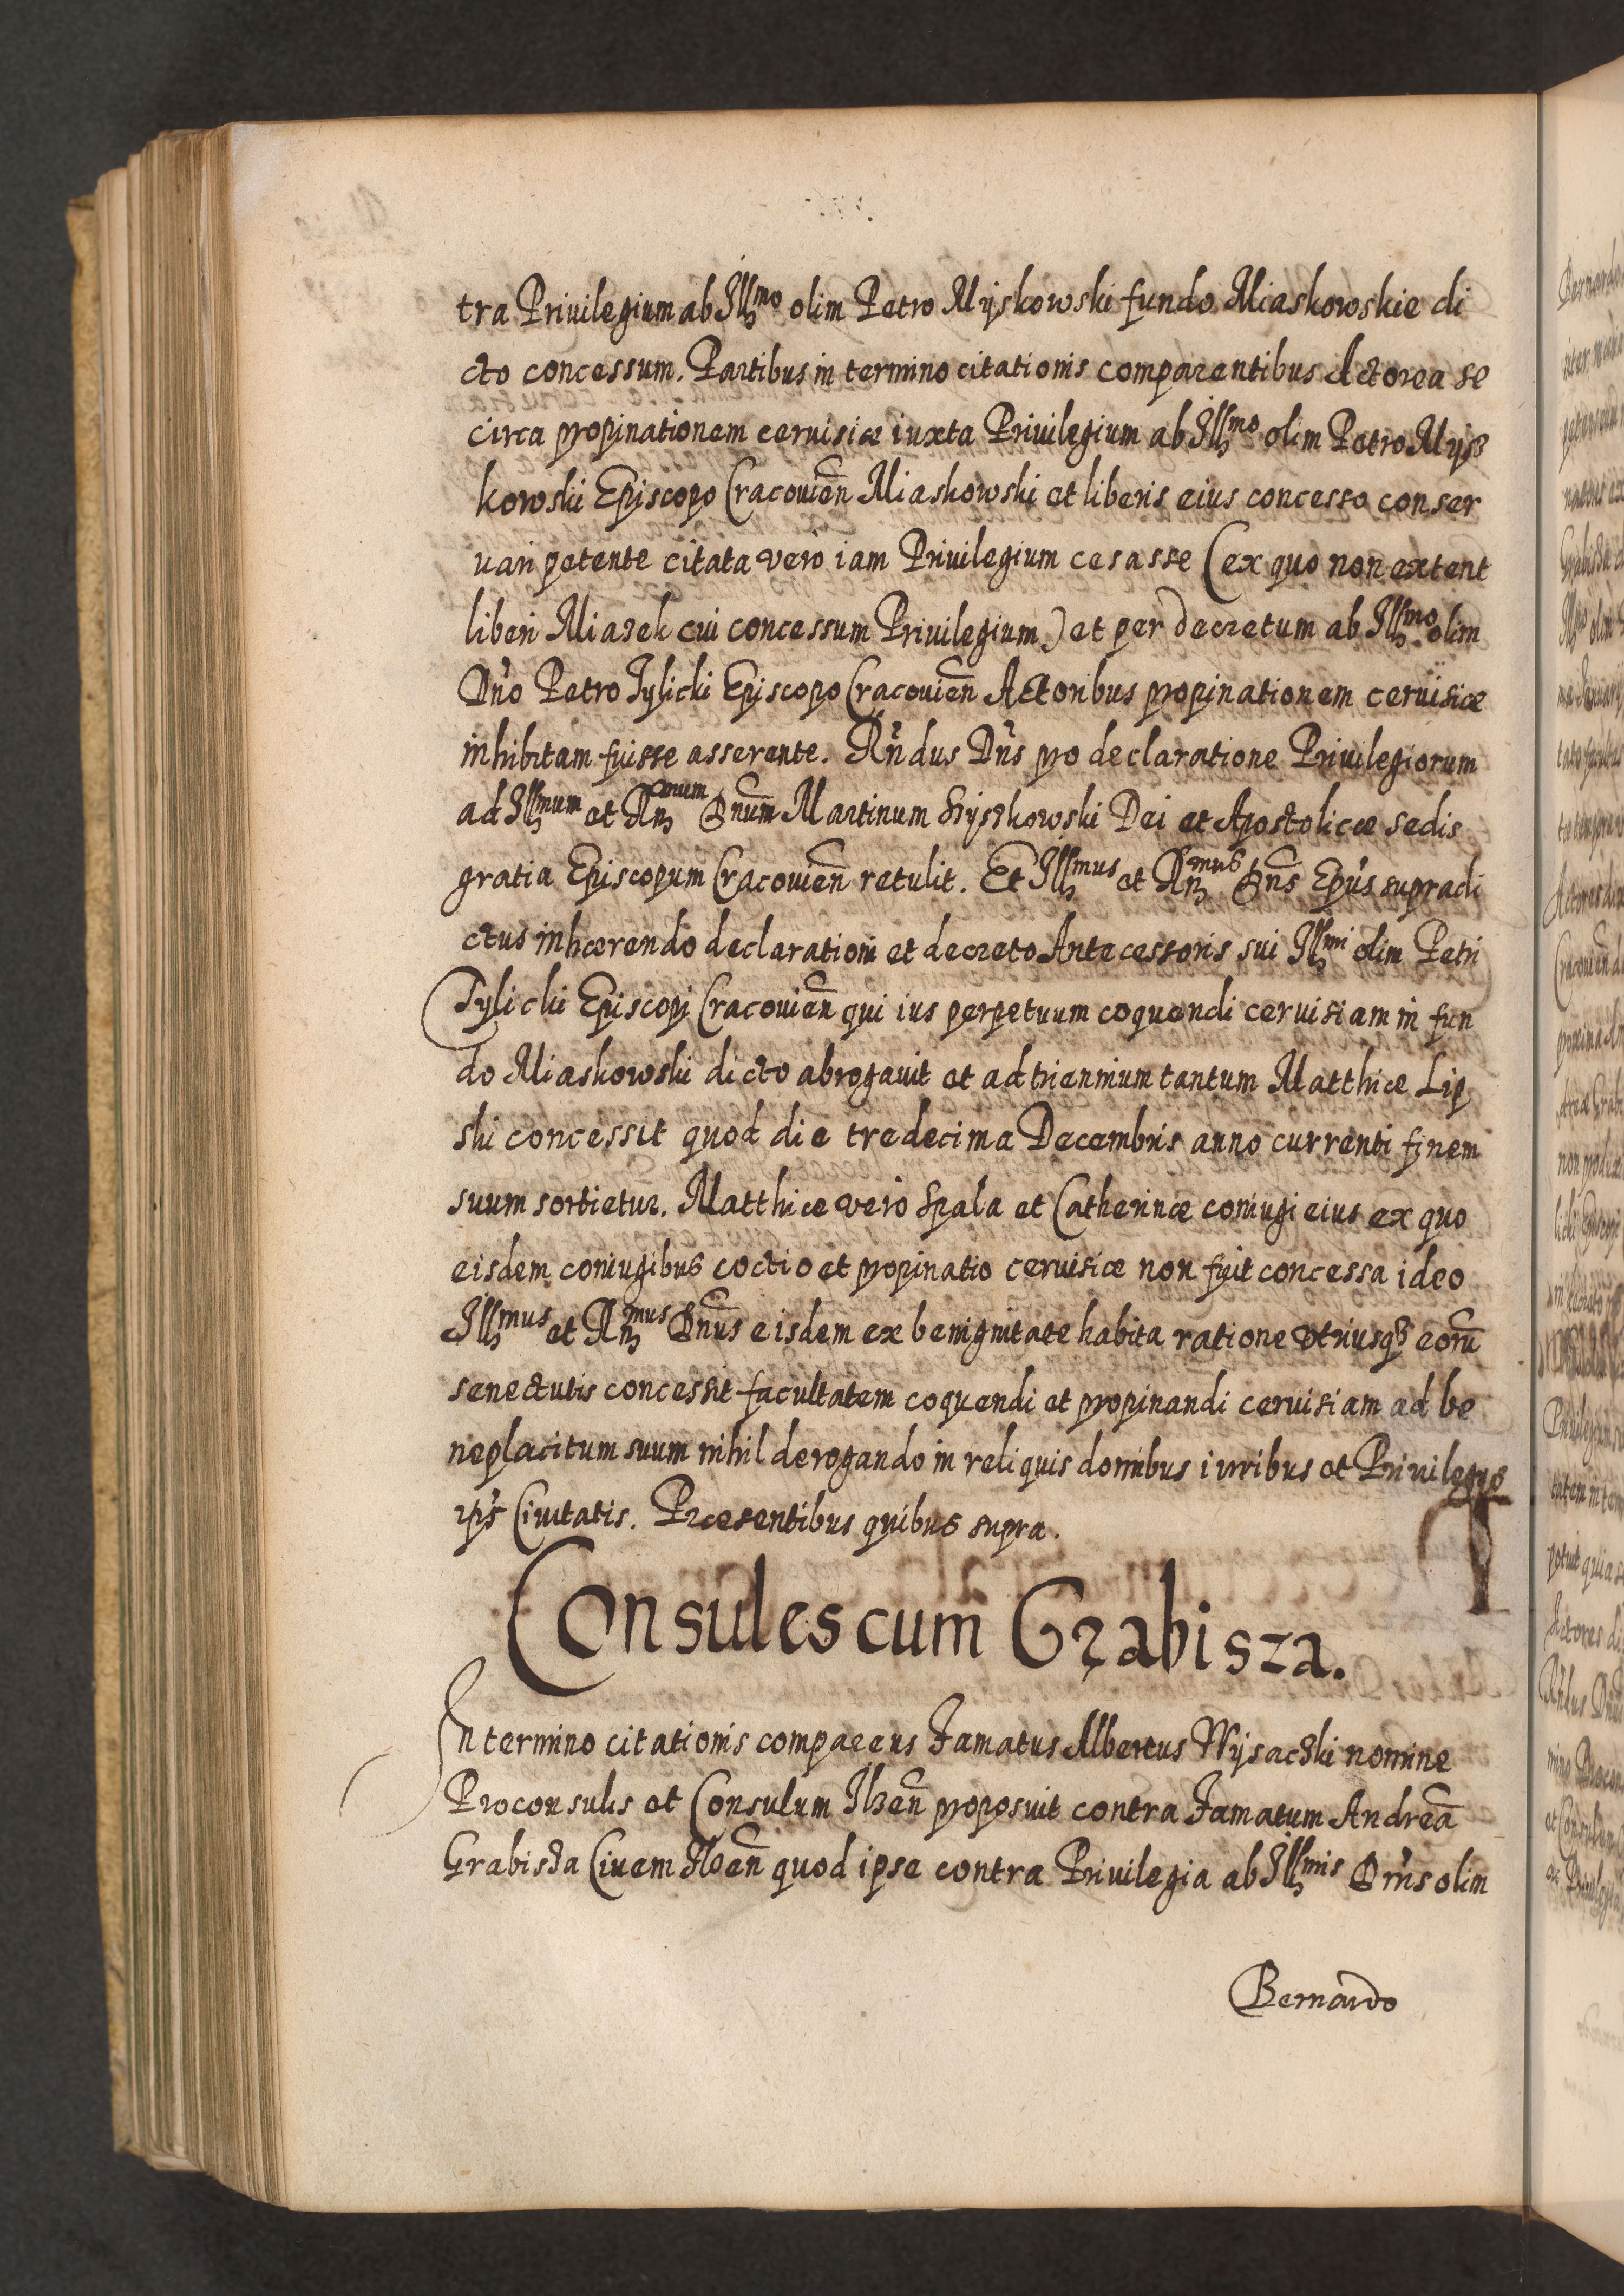 tra Priuilegium ab Illmo olim Petro Myskowski fundo Miaskowskie di
cto concessum. Partibus in termino citationis comparentibus Actorea se
circa propinationem ceruisiæ iuxta Priuilegium ab Illmo olim Petro Mys
kowski Episcopo Cracouien̄ Miaskowski et liberis eius concesso conser
uari petente citata vero iam Priuilegium cesasse (ex quo non extent
liberi Miazek cui concessum Priuilegium) et per decretum ab Illmo olim
Dno Petro Tylicki Episcopo Cracouien̄ Actoribus propinationem ceruisiæ
inhibitam fuisse asserente. Rndus Dns pro declaratione Priuilegiorum
ad Illmum et Rmum Dnum Martinum Szyszkowski Dei et Apostolicæ sedis
gratia Episcopum Cracouien̄ retulit. Et Illmus et Rmus Dns Epus supradi
ctus inhærendo declarationi et decreto Antecessoris sui Illmi olim Petri
Tylicki Episcopi Cracouien̄ qui ius perpetuum coquendi ceruisiam in fun
do Miaskowski dicto abrogauit et ad triennium tantum Matthiæ Lip
ski concessit quod die tredecima Decembris anno currenti finem
suum sortietur. Matthiæ vero Spala et Catherinæ coniugi eius ex quo
eisdem coniugibus coctio et propinatio ceruisiæ non fuit concessa ideo
Illmus et Rmus Dnus eisdem ex benignitate habita ratione vtriusq3 eorū
senectutis concessit facultatem coquendi et propinandi ceruisiam ad be
neplacitum suum nihil derogando in reliquis domibus iuribus et Priuilegys
ips Ciuitatis. Præsentibus quibus supra.
Consules cum Grabisza.
In termino citationis comparens Famatus Albertus Wysaczki nomine
Proconsulis et Consulum Ilzen̄ proposuit contra Famatum Andreā
Grabisza Ciuem Ilzen̄ quod ipse contra Priuilegia ab Illmis Dnis olim
Bernardo